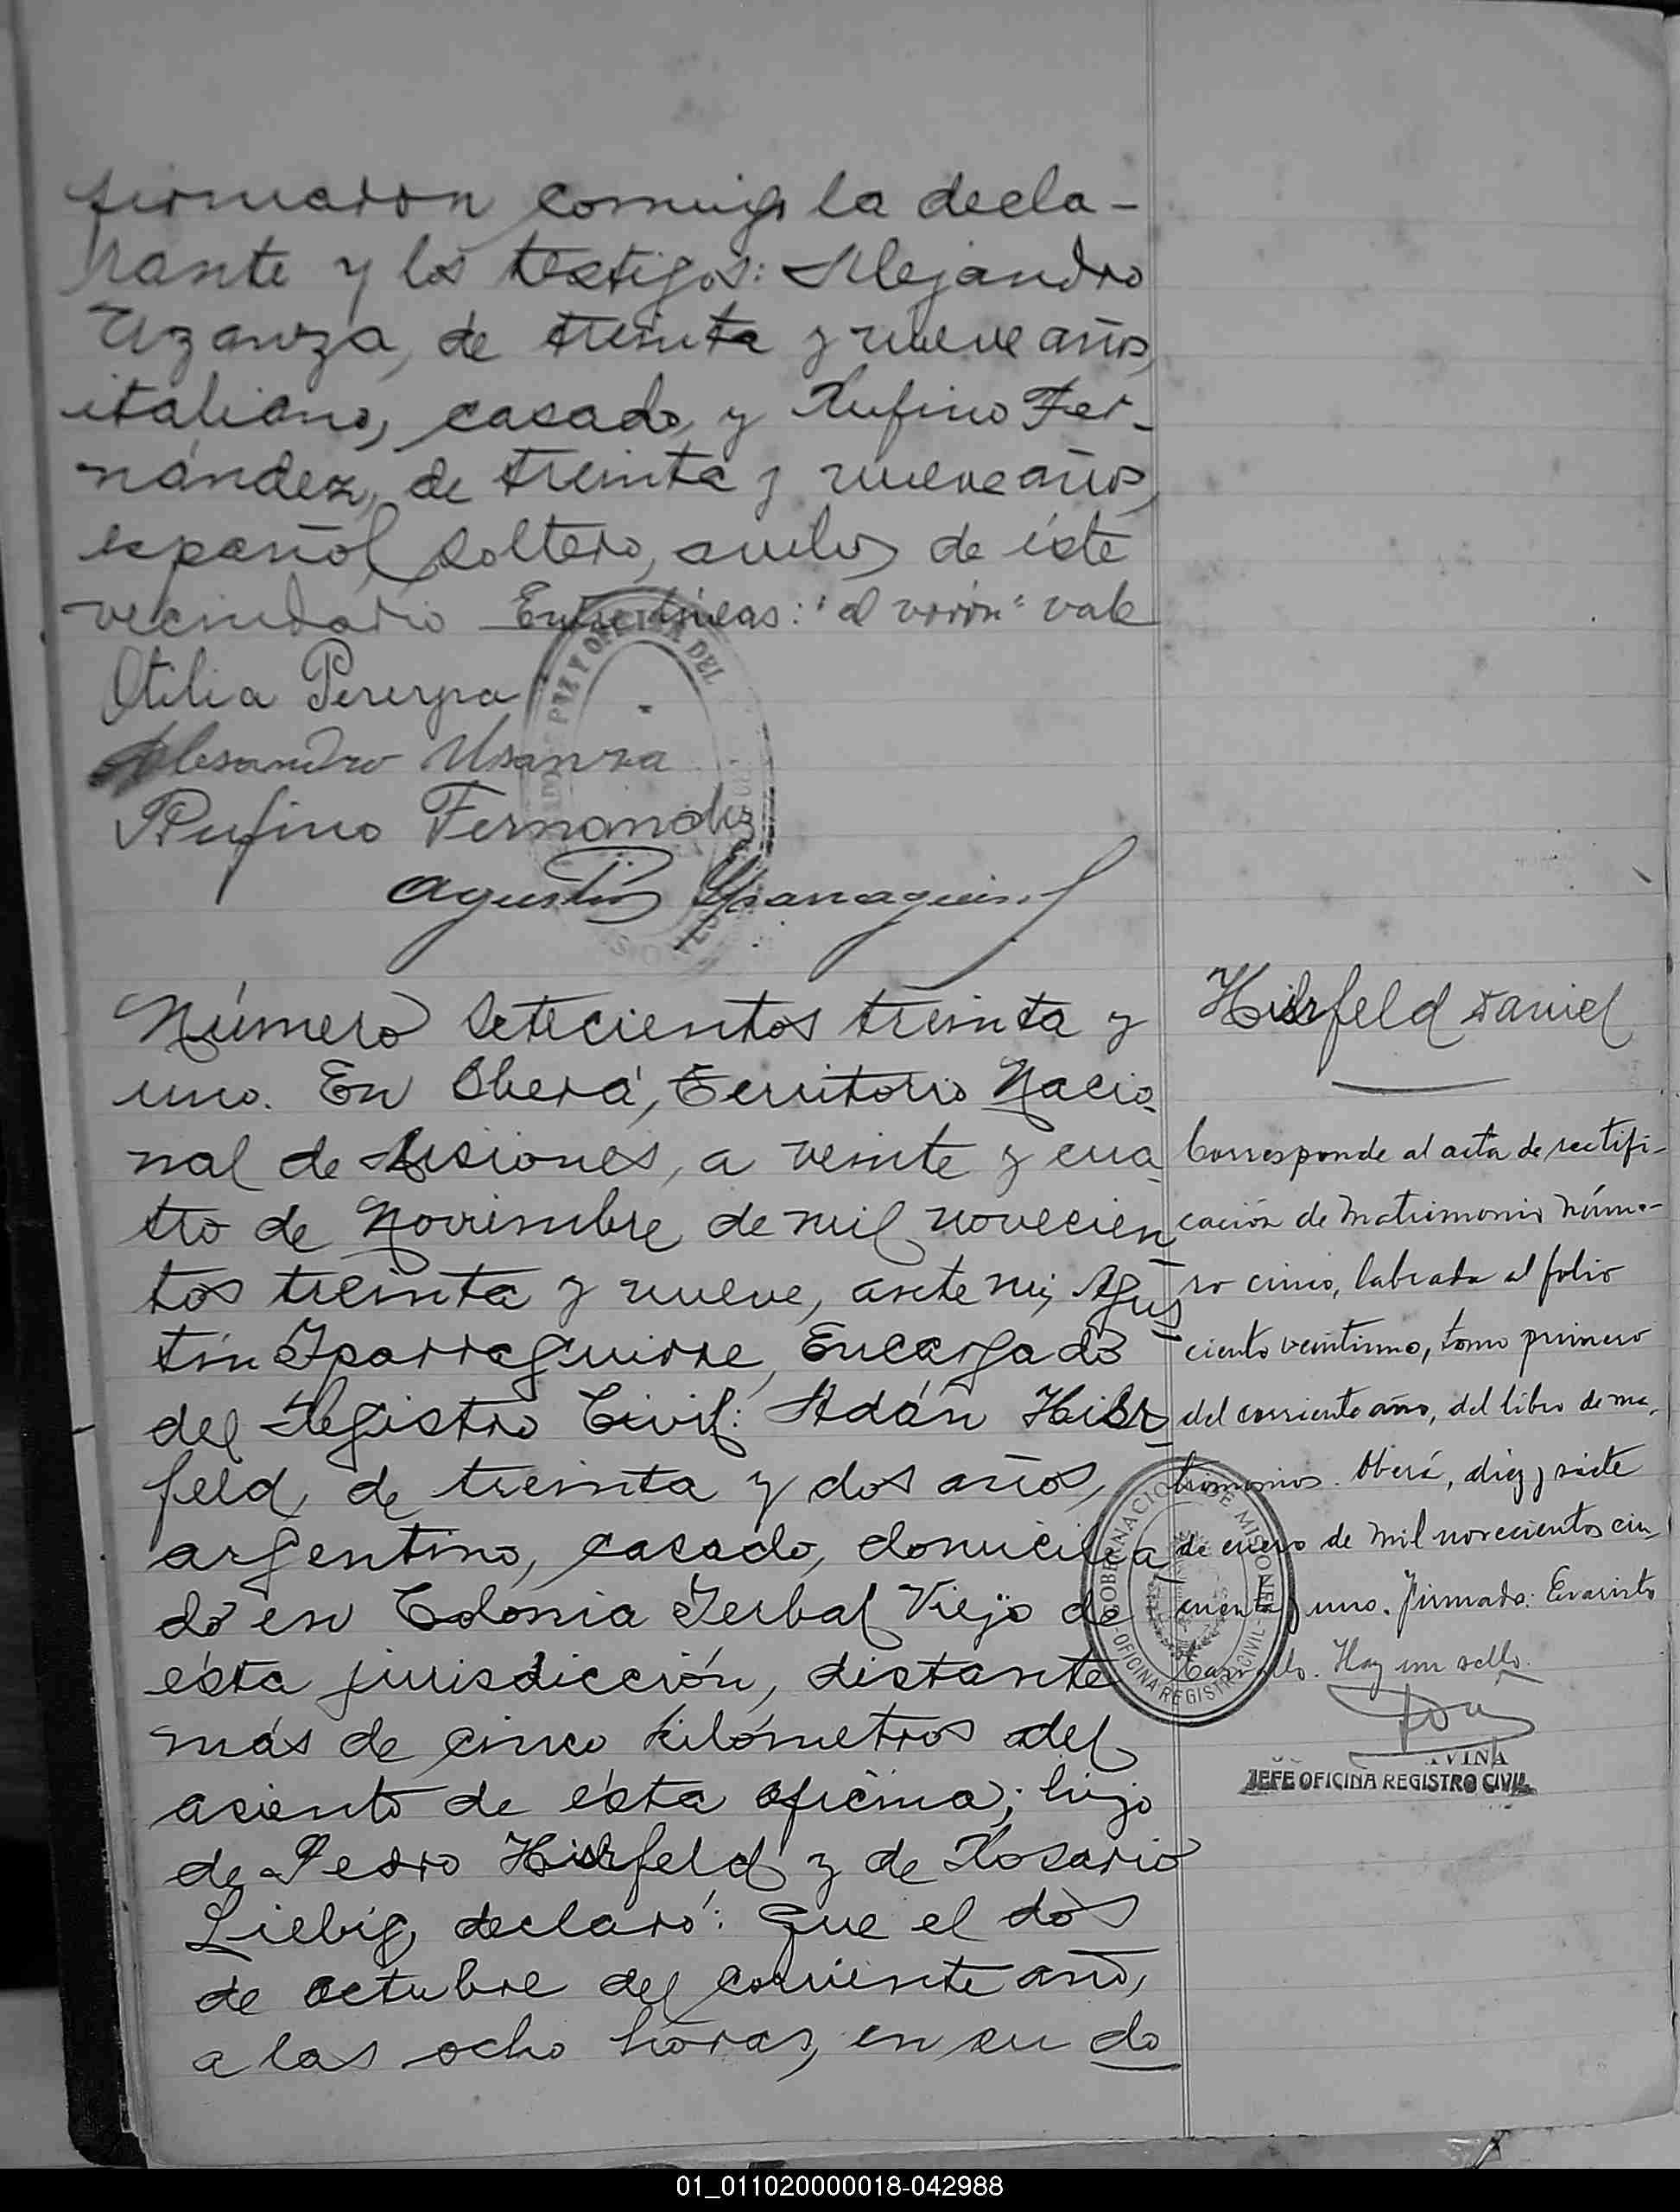 firmaron conmigo la decla-
rante y los testigos: Alejandro
Uzanza, de treinta y nueve años,
italiano, casado, y Rufino Fer-
nández, de treinta y nueve años,
español, soltero, ambos de éste
vecindario Entre líneas: "el varón" vale
Otilia Pereyra
Alesandro Usanza
Rufino Fernandez
Agustín Yparraguirre
PAZ Y OFICINA DEL
Número setecientos treinta y
uno. En Oberá, Territorio Nacio-
nal de Misiones, a veinte y cua-
tro de Noviembre de mil novecien-
tos treinta y nueve, ante mi, Agus-
tín Yparraguirre, Encargado
del Registro Civil: Adán Hilsr-
feld, de treinta y dos años,
argentino, casado, domicilia-
do en Colonia Yerbal Viejo de
ésta jurisdicción, distante
más de cinco kilómetros del
asiento de ésta oficina; hijo
de Pedro Hirfeld y de Rosario
Liebig, declaró: Que el dos
de octubre del corriente año,
a las ocho horas, en su do
Hirfeld Daniel
Corresponde al acta de rectifi-
cación de matrimonio núme-
ro cinco, labrada al folio
ciento veintiuno, tomo primero
del corriente año, del libro de ma-
trimonios. Oberá, diez y siete
de enero de mil novecientos cin-
cuenta y uno. Firmado: Evaristo
Carvallo. Hay un sello.
GOBERNACION DE MISIONES
OFICINA REGISTRO CIVIL
JEFE OFICINA REGISTRO CIVIL
01_011020000018-042988